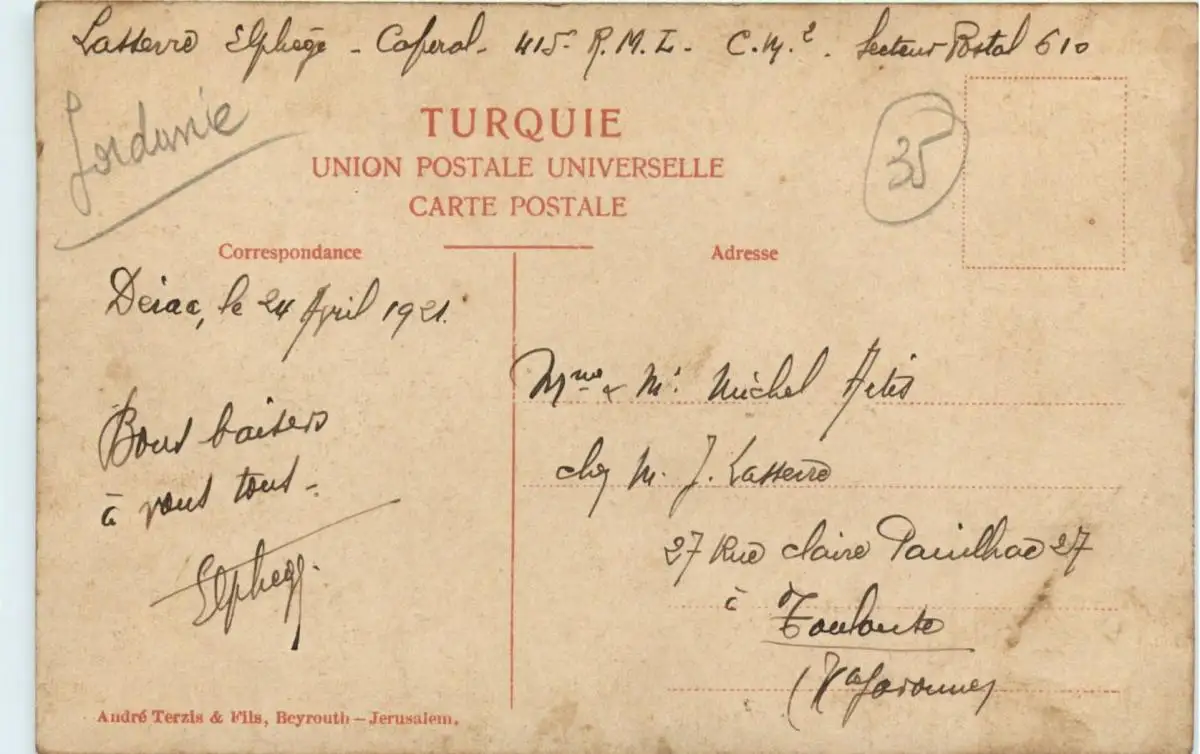 Lasserre Elphège - Caporal - 415e R.M.I. - C.M.2. Secteur Postal 610
Jordanie
35
TURQUIE
UNION POSTALE UNIVERSELLE
CARTE POSTALE
Correspondance
Adresse
Déiac, le 24 Avril 1921.
Bons baisers
à vous tous -
Elphège.
Mme & Mr Michel
chez M. J. Lasserre
27 Rue Claire Pauilhac 27
à Toulouse
(Hte Garonne)
André Terzis & Fils, Beyrouth — Jerusalem.